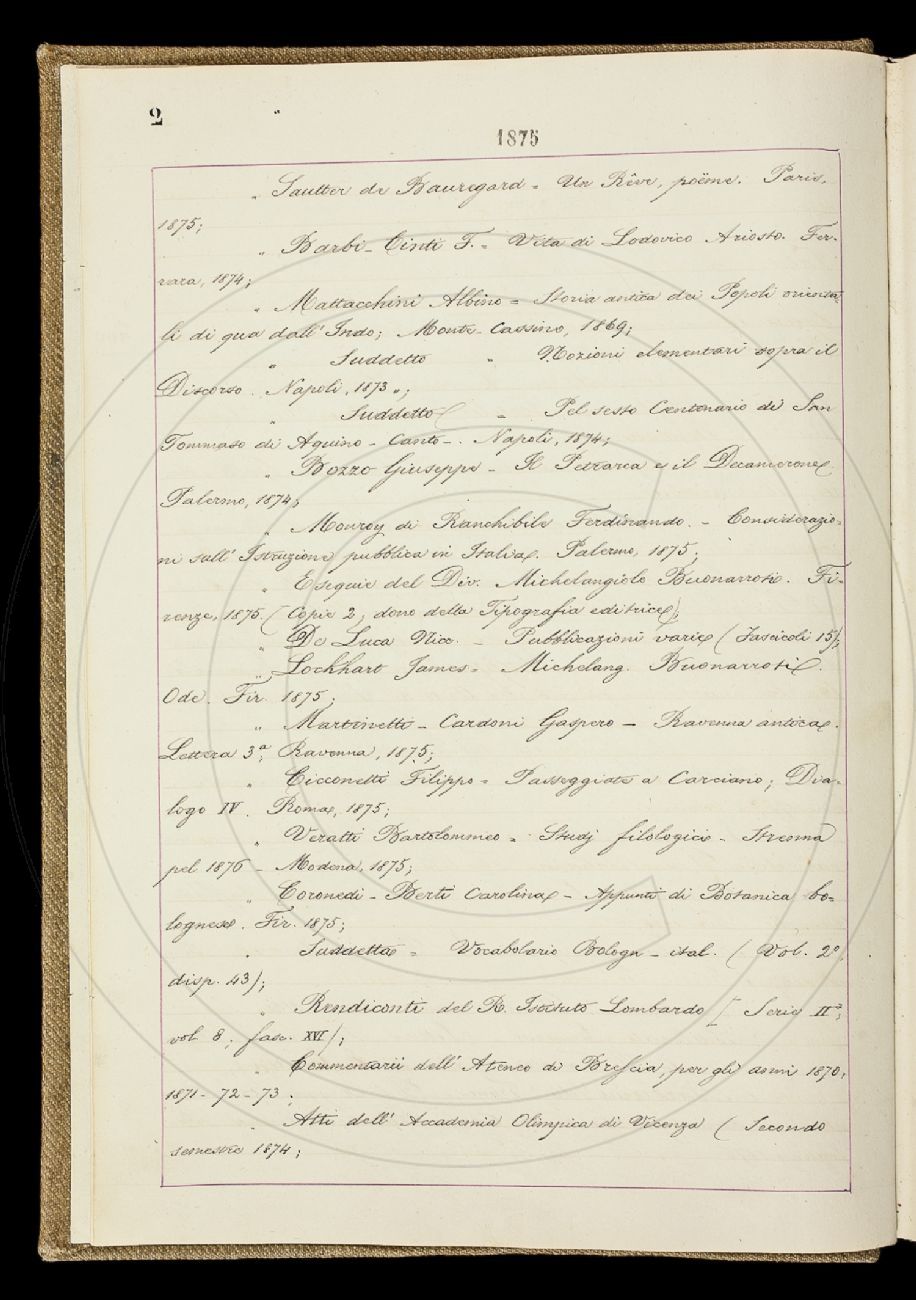 2
1875
„ Sautter de Bauregard = Un Rêve, poëme. Paris,
1875;
„ Barbi-Cinti F. = Vita di Lodovico Ariosto. Fer-
rara, 1874;
„ Mattacchini Albino = Storia antica dei Popoli orienta-
li di qua dall' Indo; Monte-Cassino, 1869;
„ Suddetto „ Nozioni elementari sopra il
Discorso. Napoli, 1873 „;
„ Suddetto = Pel sesto Centenario di San
Tommaso di Aquino - Canto -. Napoli, 1874;
„ Bozzo Giuseppe - Il Petrarca e il Decamerone.
Palermo, 1874;
„ Monroy di Ranchibile Ferdinando. - Considerazio-
ni sull' Istruzione pubblica in Italia. Palermo, 1875;
„ Esequie del Div. Michelangiolo Buonarroti. Fi-
renze, 1875. (Copie 2; dono della Tipografia editrice);
„ De Luca Nicc. - Pubblicazioni varie (Fascicoli 15);
„ Lockhart James = Michelang. Buonarroti.
Ode. Fir. 1875;
„ Martinetti - Cardoni Gaspero - Ravenna antica.
Lettera 3ª; Ravenna, 1875;
„ Cicconetti Filippo = Passeggiate a Carciano; Dia-
logo IV. Roma, 1875;
„ Veratti Bartolommeo = Studj filologici - Strenna
pel 1876 - Modena, 1875;
„ Coronedi - Berti Carolina - Appunti di Botanica bo-
lognese. Fir. 1875;
„ Suddetta = Vocabolario Bologn - ital. (Vol. 2º,
disp. 43);
„ Rendiconti del R. Istituto Lombardo [Serie IIª;
vol 8; fasc. XVI);
„ Commentarii dell' Ateneo di Brescia, per gli anni 1870,
1871 - 72 - 73;
„ Atti dell' Accademia Olimpica di Vicenza (Secondo
semestre 1874;